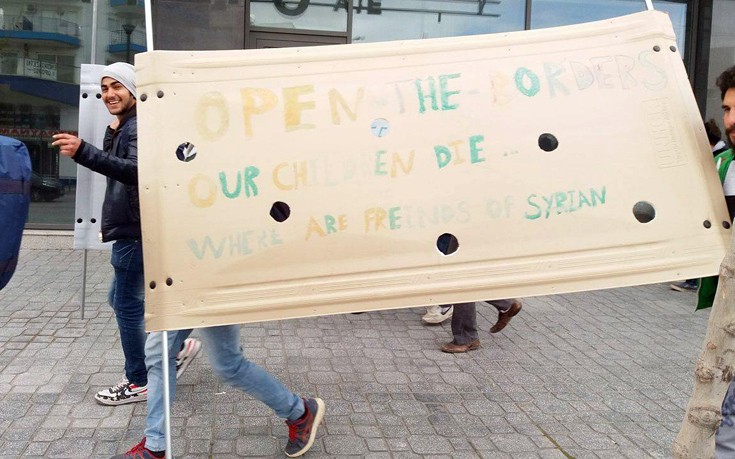 OPEN-THE-BORDERS
OUR CHILDREN DIE ...
WHERE ARE FREINDS OF SYRIAN